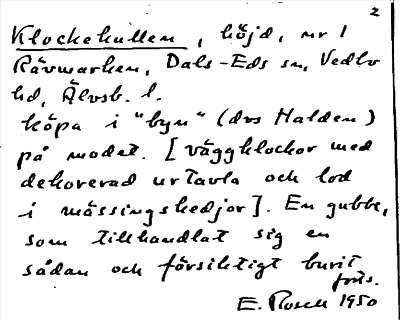 2
Klockekullen, höjd, nr 1
Rävmarken, Dals-Eds sn, Vedbo
hd, Älvsb. l.
köpa i "byn" (dvs Halden)
på modet. [väggklockor med
dekorerad urtavla och lod
i mässingskedjor]. En gubbe,
som tillhandlat sig en
sådan och försiktigt burit
forts.
E. Rosell 1950